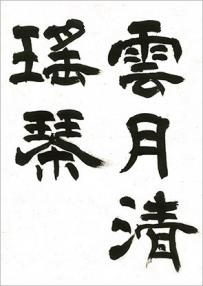 雲月清
瑶琴